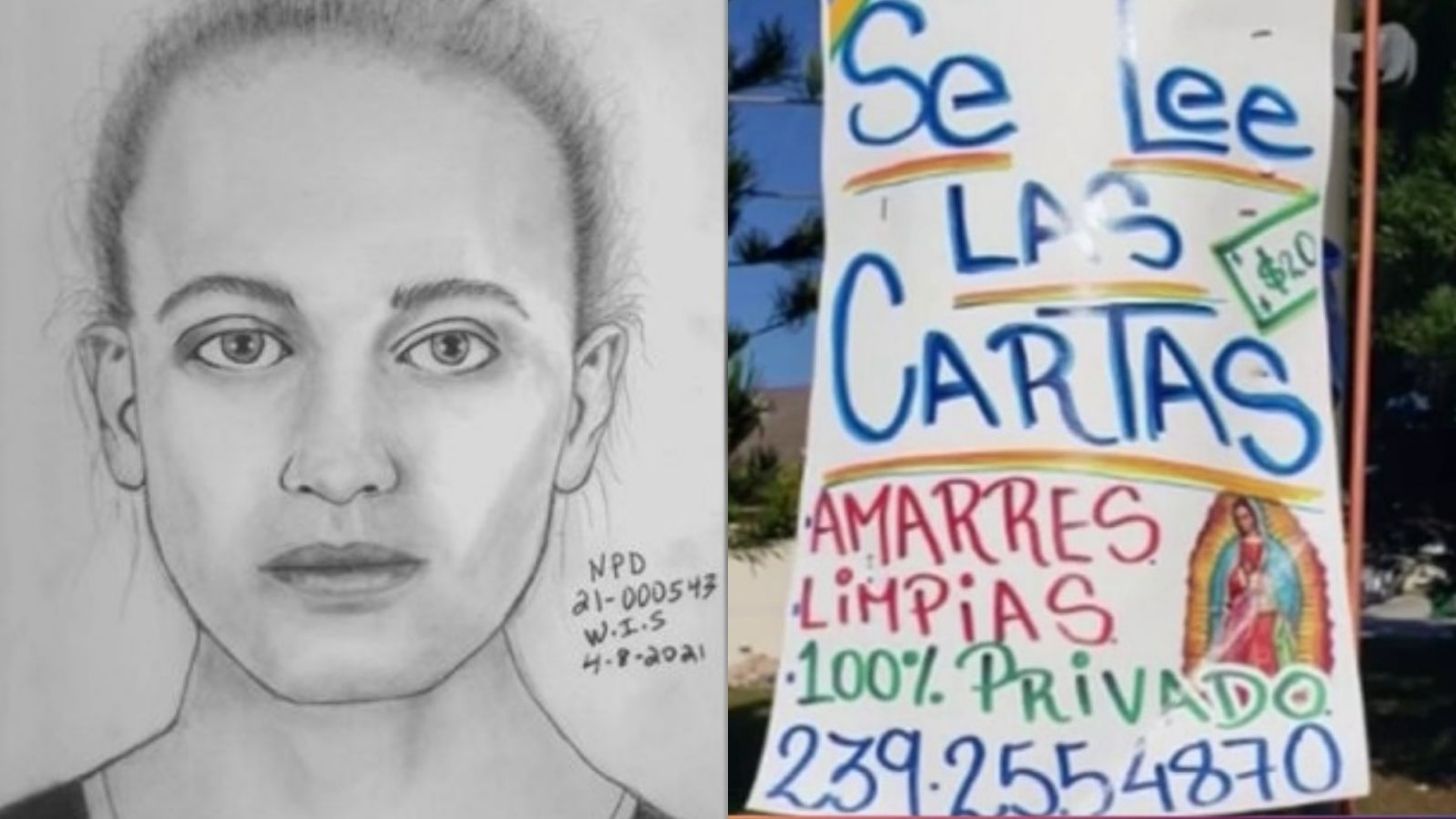 NPD
21-000543
W.I.S
4-8-2021
Se Lee
LAS
$20
CARTAS
·AMARRES.
·LiMPiAS.
·100% PRiVADO.
239.255 4870